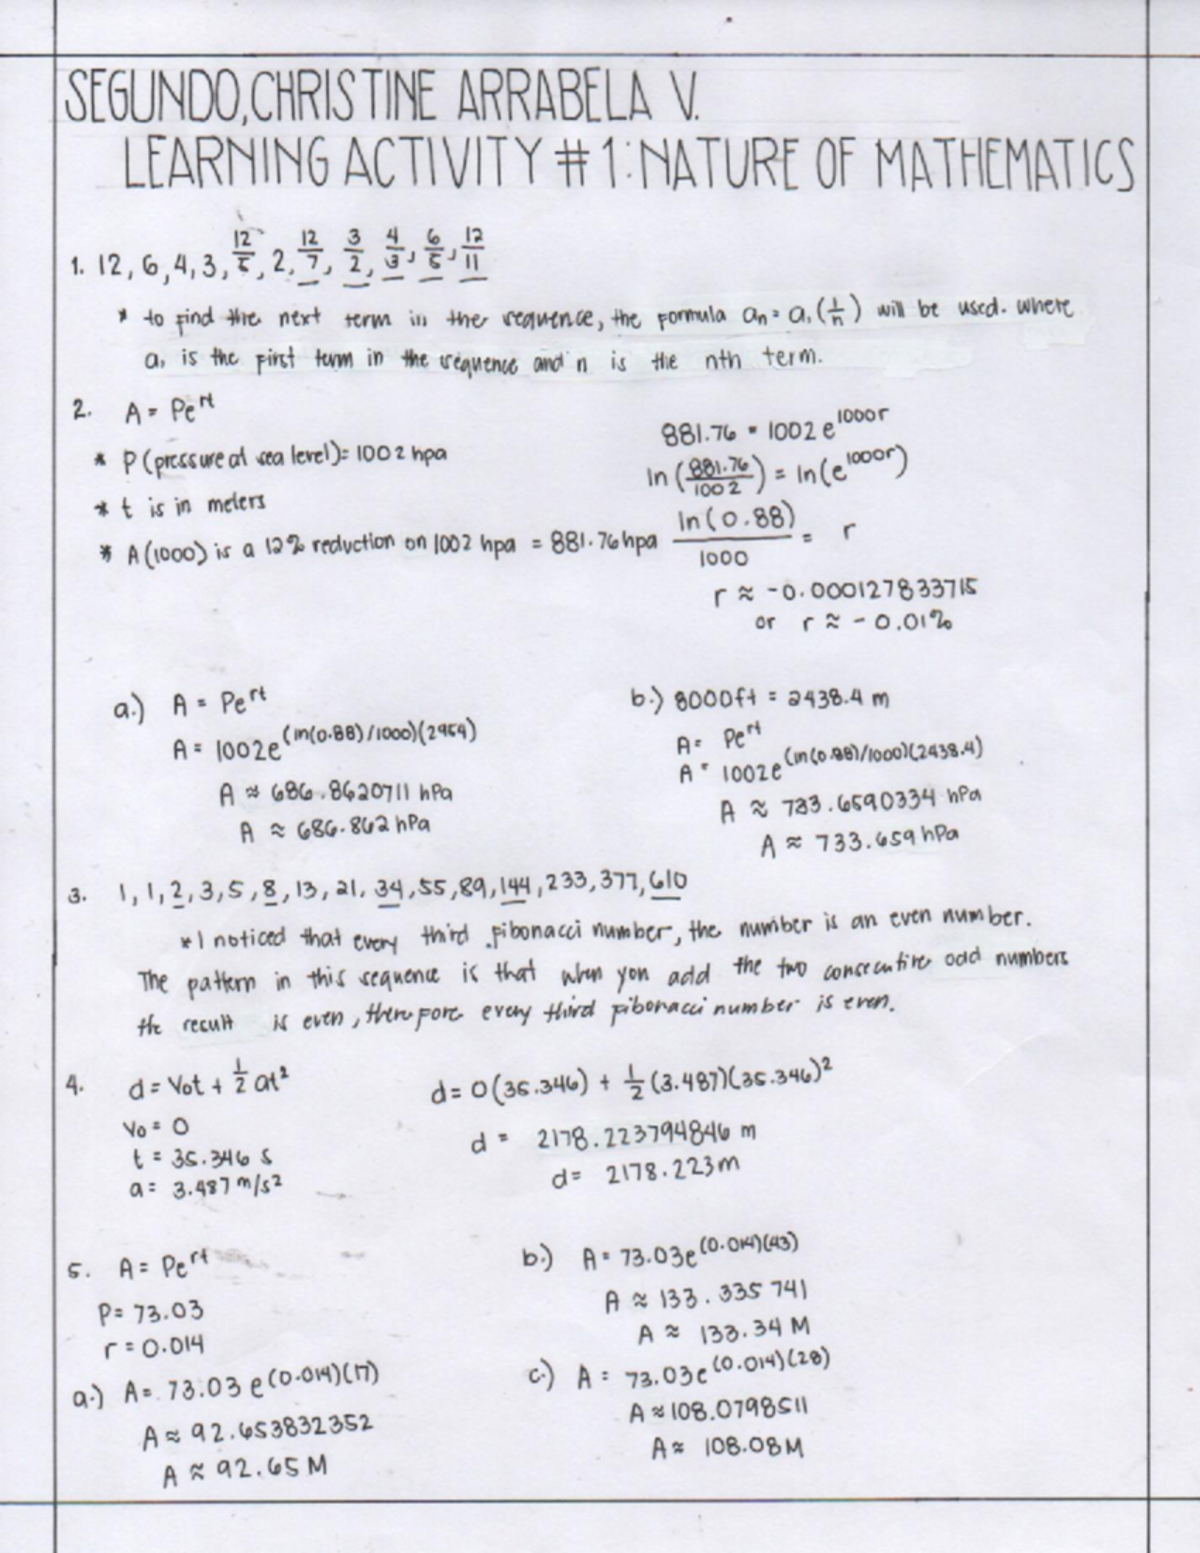 SEGUNDO, CHRISTINE ARRABELA V.
LEARNING ACTIVITY # 1: NATURE OF MATHEMATICS
1. 12, 6, 4, 3, 12/5, 2, 12/7, 3/2, 4/3, 6/5, 12/11
* to find the next term in the sequence, the formula aₙ = a₁ (1/n) will be used. where
a₁ is the first term in the sequence and n is the nth term.
2. A = Pe^rt
* P (pressure at sea level) = 1002 hpa
* t is in meters
* A(1000) is a 12% reduction on 1002 hpa = 881.76 hpa
881.76 = 1002 e^1000r
ln (881.76/1002) = ln (e^1000r)
ln (0.88)/1000 = r
r ≈ -0.000127833715
or r ≈ -0.01%
a.) A = Pe^rt
A = 1002e^(ln(0.88)/1000)(2954)
A ≈ 686.8620711 hPa
A ≈ 686.862 hPa
b.) 8000ft = 2438.4 m
A = Pe^rt
A = 1002e^(ln(0.88)/1000)(2438.4)
A ≈ 733.6590334 hPa
A ≈ 733.659 hPa
3. 1, 1, 2, 3, 5, 8, 13, 21, 34, 55, 89, 144, 233, 377, 610
* I noticed that every third fibonacci number, the number is an even number.
The pattern in this sequence is that when you add the two consecutive odd numbers
the result is even, therefore every third fibonacci number is even.
4. d = Vot + 1/2 at²
Vo = 0
t = 35.346 s
a = 3.487 m/s²
d = 0(35.346) + 1/2 (3.487)(35.346)²
d = 2178.223794846 m
d = 2178.223m
5. A = Pe^rt
P = 73.03
r = 0.014
a.) A = 73.03 e^(0.014)(17)
A ≈ 92.653832352
A ≈ 92.65 M
b.) A = 73.03e^(0.014)(43)
A ≈ 133.335741
A ≈ 133.34 M
c.) A = 73.03e^(0.014)(28)
A ≈ 108.0798511
A ≈ 108.08M